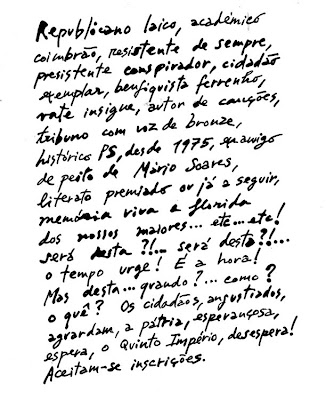 Republicano laico, académico
coimbrão, resistente de sempre,
persistente conspirador, cidadão
exemplar, benfiquista ferrenho,
vate insigne, autor de canções,
tribuno com voz de bronze,
histórico PS, desde 1975, examigo
de peito de Mário Soares,
literato premiado ou já a seguir,
memória viva e florida
dos nossos maiores... etc... etc!
será desta ?!... será desta?!...
o tempo urge! É a hora!
Mas desta... quando?... como?
o quê? Os cidadãos, angustiados,
aguardam, a pátria, esperançosa,
espera, o Quinto Império, desespera!
Aceitam-se inscrições.